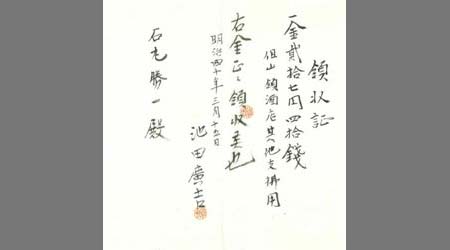 領収証
一金貳拾七円四拾錢
但山領酒店其他支拂用
右金正ニ領収候也
明治四十年三月十五日
池田廣吉
石丸勝一殿